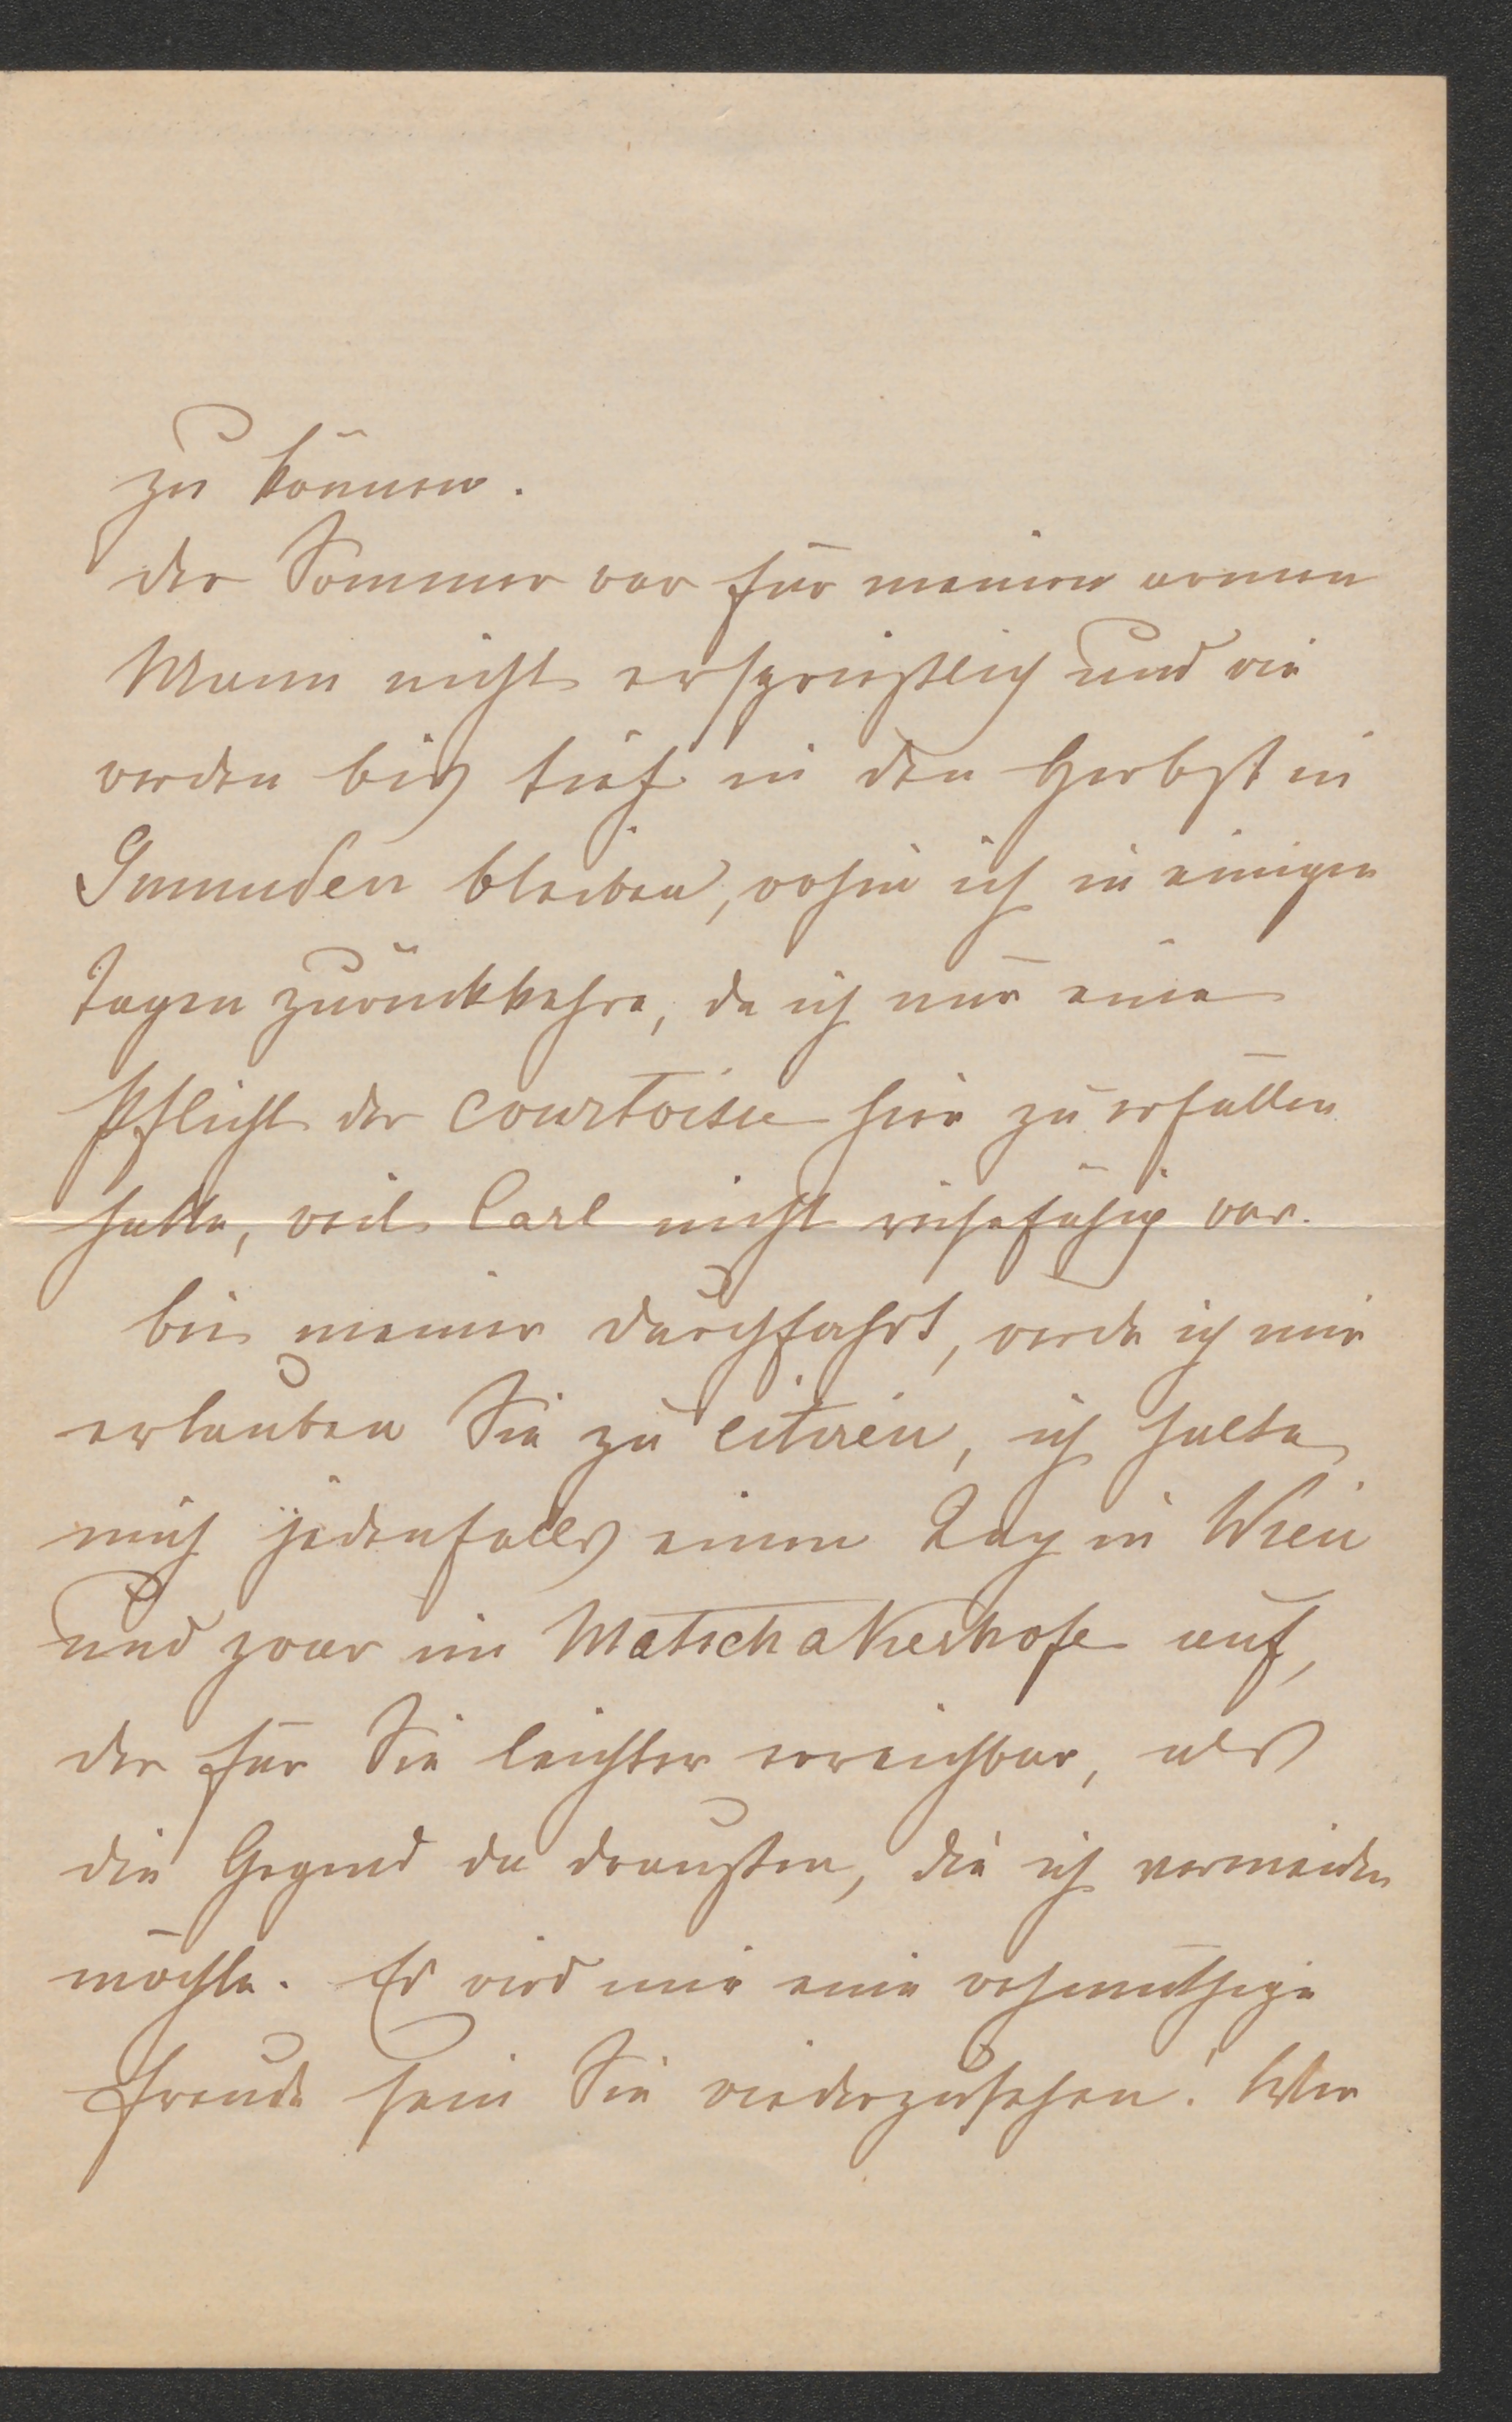 zu können.
der Sommer war für meinen armen
Mann nicht ersprießlich und wir
werden bis tief in den Herbst in
Gmunden bleiben, wohin ich in einigen
Tagen zurückkehre, da ich nur eine
Pflicht der courtoisie hier zu erfüllen
hatte, weil Carl nicht reisefähig war.
bei meiner Durchfahrt, werde ich mir
erlauben Sie zu citiren, ich halte
mich jedenfalls einen Tag in Wien
und zwar im Matschakerhofe auf,
der für Sie leichter erreichbar, als
die Gegend da draußen, die ich vermeiden
möchte. Es wird mir eine wehmüthige
Freude sein Sie wiederzusehen! Wer